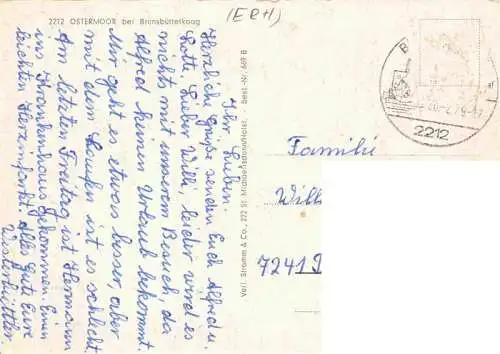 2212 OSTERMOOR bei Brunsbüttelkoog
(E R H)
Ihr Lieben.
Herzliche Grüße senden Euch Alfred u.
Lotti. Lieber Willi, leider wird es
nichts mit unserem Besuch, da
Alfred keinen Urlaub bekommt.
Mir geht es etwas besser, aber
mit dem Laufen ist es schlecht.
Am letzten Freitag ist Hermann
ins Krankenhaus gekommen. Einen
leichten Herzinfarkt. Alles Gute Eure
Verl. Stramm & Co., 222 St. Michaelisdonn/Holst. - Best.-Nr. 669 B
2212
Familie
Willi
7241